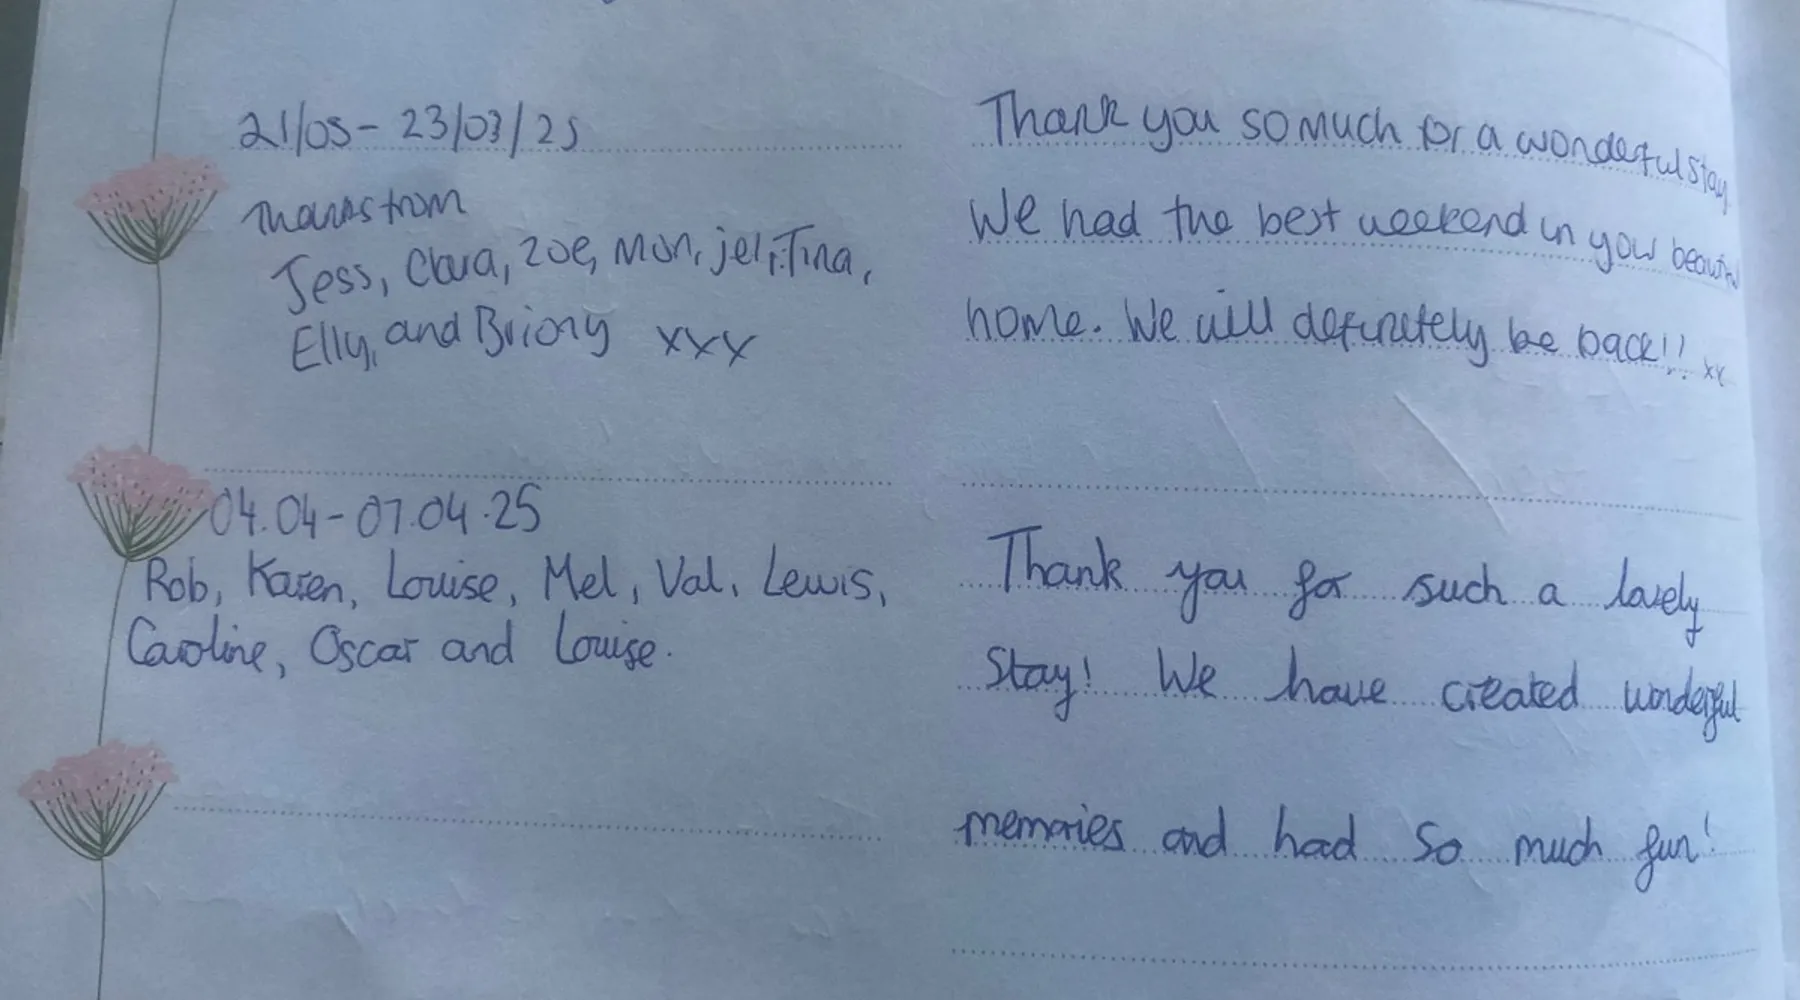 21/05 - 23/03/25
Thanks from
Jess, Clara, Zoe, Mon, jel, Tina,
Elly, and Briony xxx
Thank you so much for a wonderful stay
We had the best weekend in your beautiful
home. We will definitely be back!! xx
04.04 - 07.04.25
Rob, Karen, Louise, Mel, Val, Lewis,
Caroline, Oscar and Louise.
Thank you for such a lovely
Stay! We have created wonderful
memories and had so much fun!